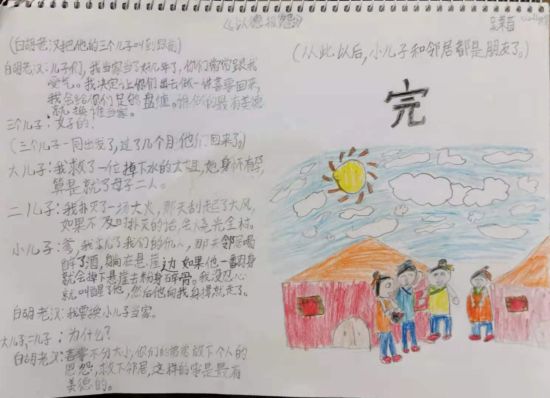 《以德报怨》
(白胡老汉把他的三个儿子叫到跟前)
白胡老汉:儿子们,我当家当了好几年了,你们常常跟我
受气。我决定让你们出去做一件善事回来,
我会给你们足的盘缠。谁做的最有美德
就换谁当家。
三个儿子:好的。
(三个儿子一同出发了,过了几个月他们回来了。)
大儿子:我救了一位掉下水的大姐,她身怀有孕,
算是救了母子二人。
二儿子:我扑灭了一场大火,那天刮起了大风,
如果不及时扑灭的话,会烧光全村。
小儿子:爹,我救了我们的仇人,那天邻居喝
醉了酒,躺在悬崖边,如果他一翻身
就会掉下悬崖去粉身碎骨。我没忍心
就叫醒了他,然后他向我
白胡老汉:我要换小儿子当家。
大儿子,二儿子:为什么?
白胡老汉:善事不分大小,你们的弟弟放下个人的
恩怨,救下邻居,这样的事是最有
美德的。
(从此以后,小儿子和邻居都是朋友了。)
完